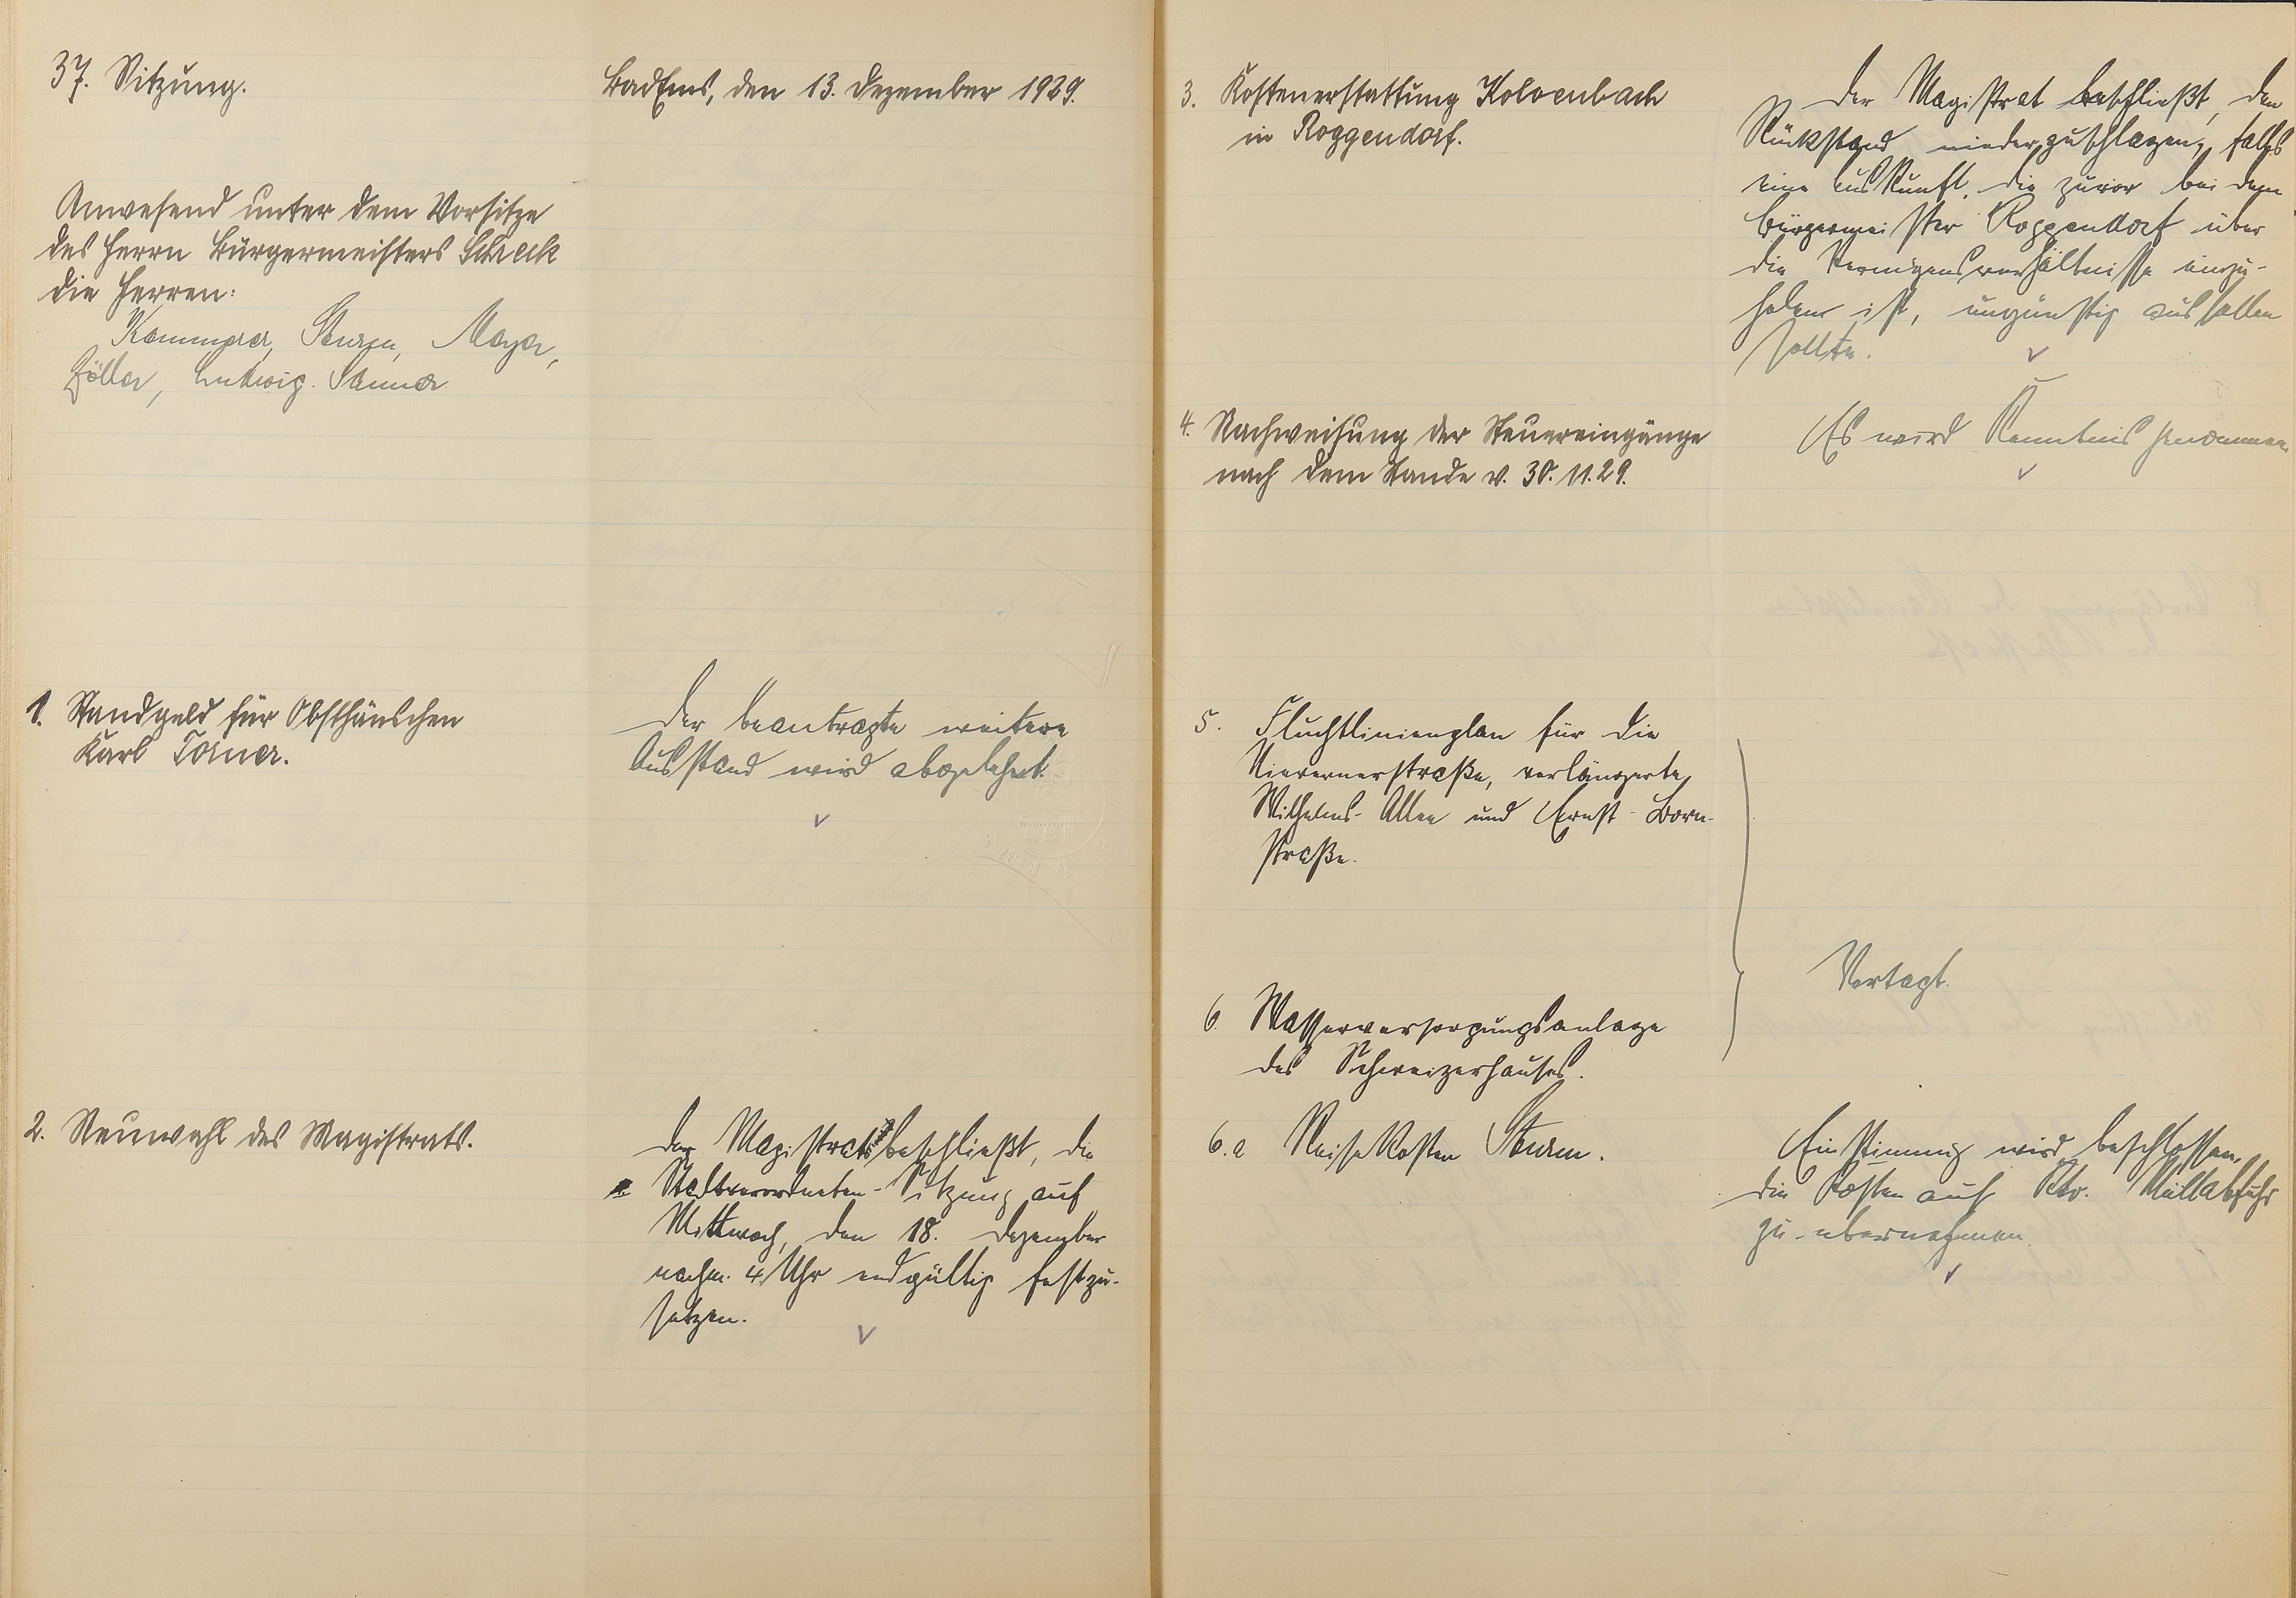 37. Sitzung.
Bad Ems, den 13. Dezember 1929.
Anwesend unter dem Vorsitze
des Herrn Bürgermeisters Schreck
die Herren:
Kammerer, Sturm, Mayer,
Zöller, Ludwig. Sanner
1. Standgeld für Obsthäuschen
Karl Torner.
Der beantragte weitere
Ausstand wird abgelehnt.
2. Neuwahl des Magistrats.
Der Magistrat beschließt, die
Stadtverordneten-Sitzung auf
Mittwoch, den 18. Dezember
nachm. 4 Uhr endgültig festzu-
setzen.
3. Kostenerstattung Kolvenbach
in Roggendorf.
Der Magistrat beschließt, den
Rückstand niederzuschlagen, falls
eine Auskunft, die zuvor bei dem
Bürgermeister Roggendorf über
die Vermögensverhältnisse einzu-
holen ist, ungünstig ausfallen
sollte.
4. Nachweisung der Steuereingänge
nach dem Stande v. 30.11.29.
Es wird Kenntnis genommen
5. Fluchtlinienplan für die
Nievernerstraße, verlängerte
Wilhelms-Allee und Ernst-Born-
straße.
6. Wasserversorgungsanlage
des Schweizerhauses.
Vertagt.
6.a Reisekosten Sturm.
Einstimmig wird beschlossen,
die Kosten auf Kto. Müllabfuhr
zu übernehmen.